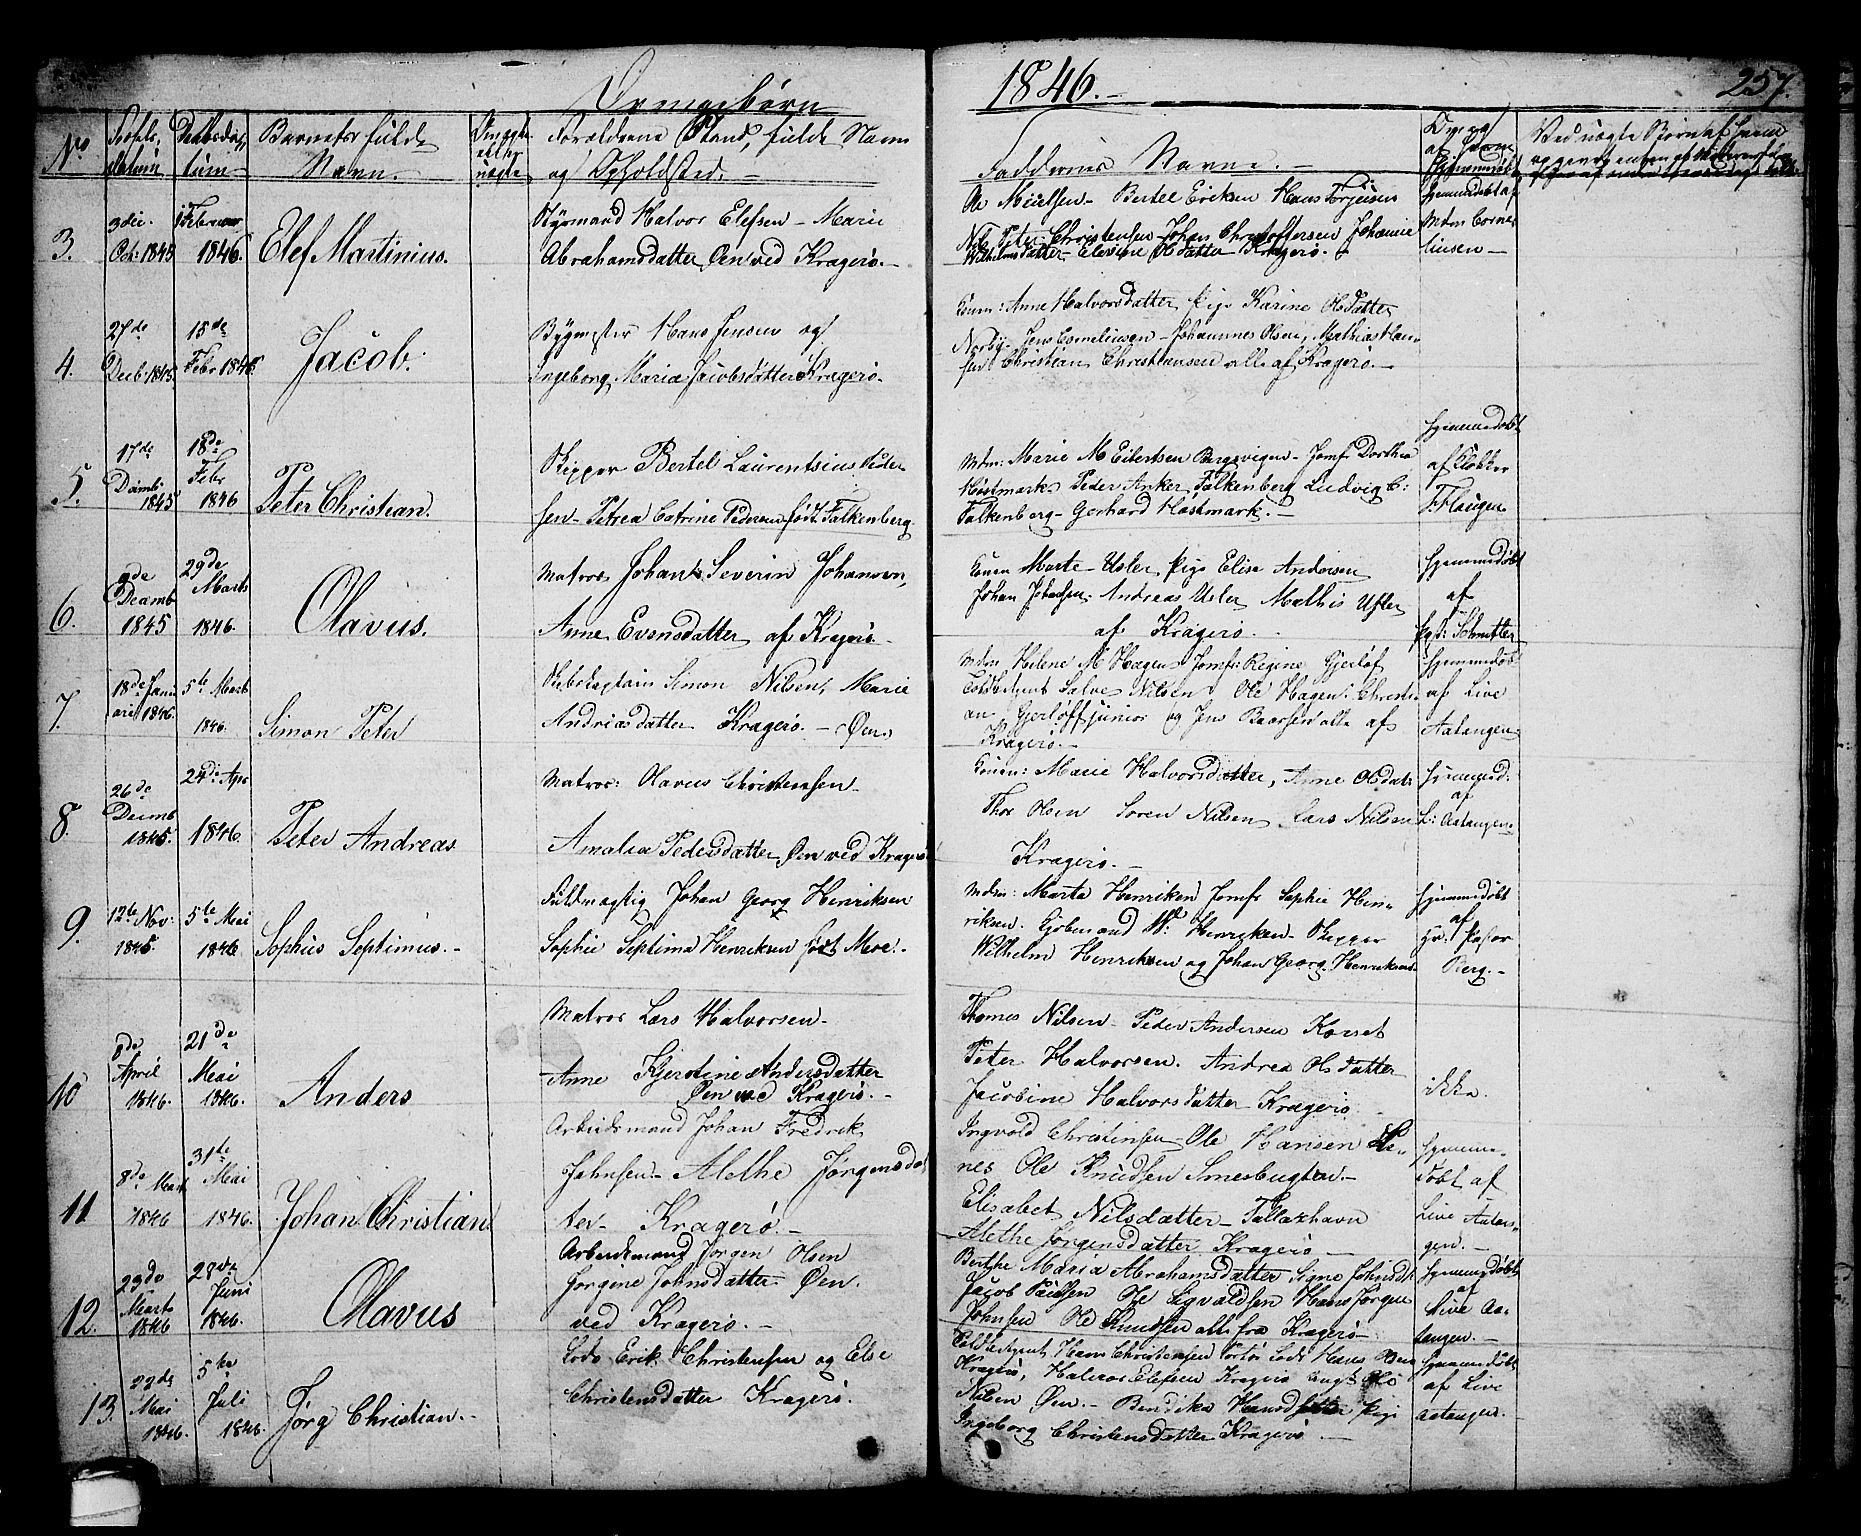 Drengebörn
1846.-
257.
No
Födsels-
datum
Daabsda-
tum
Barnets fulde
Navn.
eller
Forældrene Stand, fulde Navn
og Opholdsted.
Faddernes Navne.
3.
3die
Oct: 1845
Februar
1846.
Elef Martinius.
Styrmand Halvor Elefsen - Marie
Abrahamsdatter Øen ved Kragerö.
Bertel Eriksen Hans
Peter Christensen Johan Christoffersen Johanne
Wilhelmsdatter Elevine Olsdatter Kragerö.
Hjemmedöbt af
Mdm Corne-
liusen
4.
27de
Decb 1845.
15de
Febr 1846
Jacob.
Bygmester Hans Jensen og
Ingeborg Maria Jacobsdatter Kragerö.
Konen: Anne Halvorsdatter Pige Karine Olsdatter
Jens Corneliusen - Johannes Olsen, Mathias Han-
sen Christian Christiansen alle af Kragerö.
5.
17de
Decemb
1845
18de
Febr
1846
Peter Christian.
Skipper Bertel Laurentsius Peder-
sen - Petrea Catrine Pedersen födt Falkenberg
Mdm: Marie M Eilertsen Bergsvigen - Jomf Dorthea
Höstmark Peder Anker Falkenberg Ludvig C:
Falkenberg - Gerhard Höstmark.
Hjemmedöbt
af Klokker
T. Flougen
6.
9de
Decemb
1845
29de
Marts
1846.
Olavus.
Matros Johan Severin Johansen,
Anne Evensdatter af Kragerö
Konen Marte Usler Pige Elise Andersen
Johan Johansen: Andreas Usler Mathis Usler
af Kragerö.
Hjemmedöbt
af
Pgt: Schmitler
7.
18de Janu
ari 1846.
5te Marts
1846.
Simon Peter
Skibskaptain Simon Nilsen, Marie
Andriasdatter Kragerö. - Øen
Mdm Helene M Hagen Jomf: Regine Gjerlöf
Toldbetjent Salve Nilsen Ole Hagen: Christi-
an Gjerlöff junior og Jens Baarsen alle af
Kragerö.
Hjemmedöbt
af Live
Aatangen
8.
26de
Decemb
1845.
24de Apr
1846.
Peter Andreas
Matros: Olavus Christensen
Amalia Pedersdatter Øen ved Kragerö
Konen: Marie Halvorsdatter, Anne Olsdat:
Thor Olsen Sören Nilsen Lars Nilsen
Kragerö.
Hjemmed:
af
L: Aatangen
9.
12te Nov:
1845
5te Mai
1846
Sophus Septimus.
Fuldmægtig Johan Georg Henriksen
Sophie Septima Henriksen födt Moe.
Mdm: Marta Henriksen Jomfr Sophie Hen-
riksen. Kjöbmand W: Henriksen - Skipper
Wilhelm Henriksen og Johan Georg Henriksen
Hjemmedöbt
af
Hr. Pastor
Berg.
10
8de
April
1846.
21de
Mai
1846.
Anders
Matros Lars Halvorsen
Anne Kjerstine Andersdatter
Øen ved Kragerö.
Thomes Nilsen - Peder Andersen Korset
Peter Halvorsen. Andrea Olsdatter
Jacobine Halvorsdatter Kragerö
ikke.
11
8de Marts
1846
31te
Mai
1846.
Johan Christian
Arbeidsmand Johan Fredrik
Johnsen - Alethe Jörgensdat-
ter - Kragerö.
Ingvold Christensen - Ole Hansen
Ole Knudsen Smesbugten.
Elisabet Nilsdatter - Tallaxhavn
Alethe Jorgensdatter Kragerö
Hjemme-
döbt af
Live Aatan-
gen.
12.
29de
Marts
1846
28de
Juni
1846.
Olavus
Arbeidsmand Jorgen Olsen
Jorgine Johnsdatter Øen
ved Kragerö.
Berthe Maria Abrahamsdatter Signe Johnsdt
Jacob Paulsen Ole Sigvaldsen Hans Jörgen
Johnsen Ole Knudsen alle fra Kragerö
Hjemmedöbt
af
Live Aa-
tangen.
13.
22de
Mai
1846.
5te
Juli
1846.
Jörg Christian.
Lods Erik Christensen og Else
Christensdatter Kragerö.
Toldbetjent Hans Christensen Lods Hans
Kragerö, Halvor Elefsen Kragerö Ole
Nilsen Øen. - Bendika Hansdatter Pige
Ingeborg Christensdatter Kragerö
Hjemmedöbt
af Live
Aatangen.